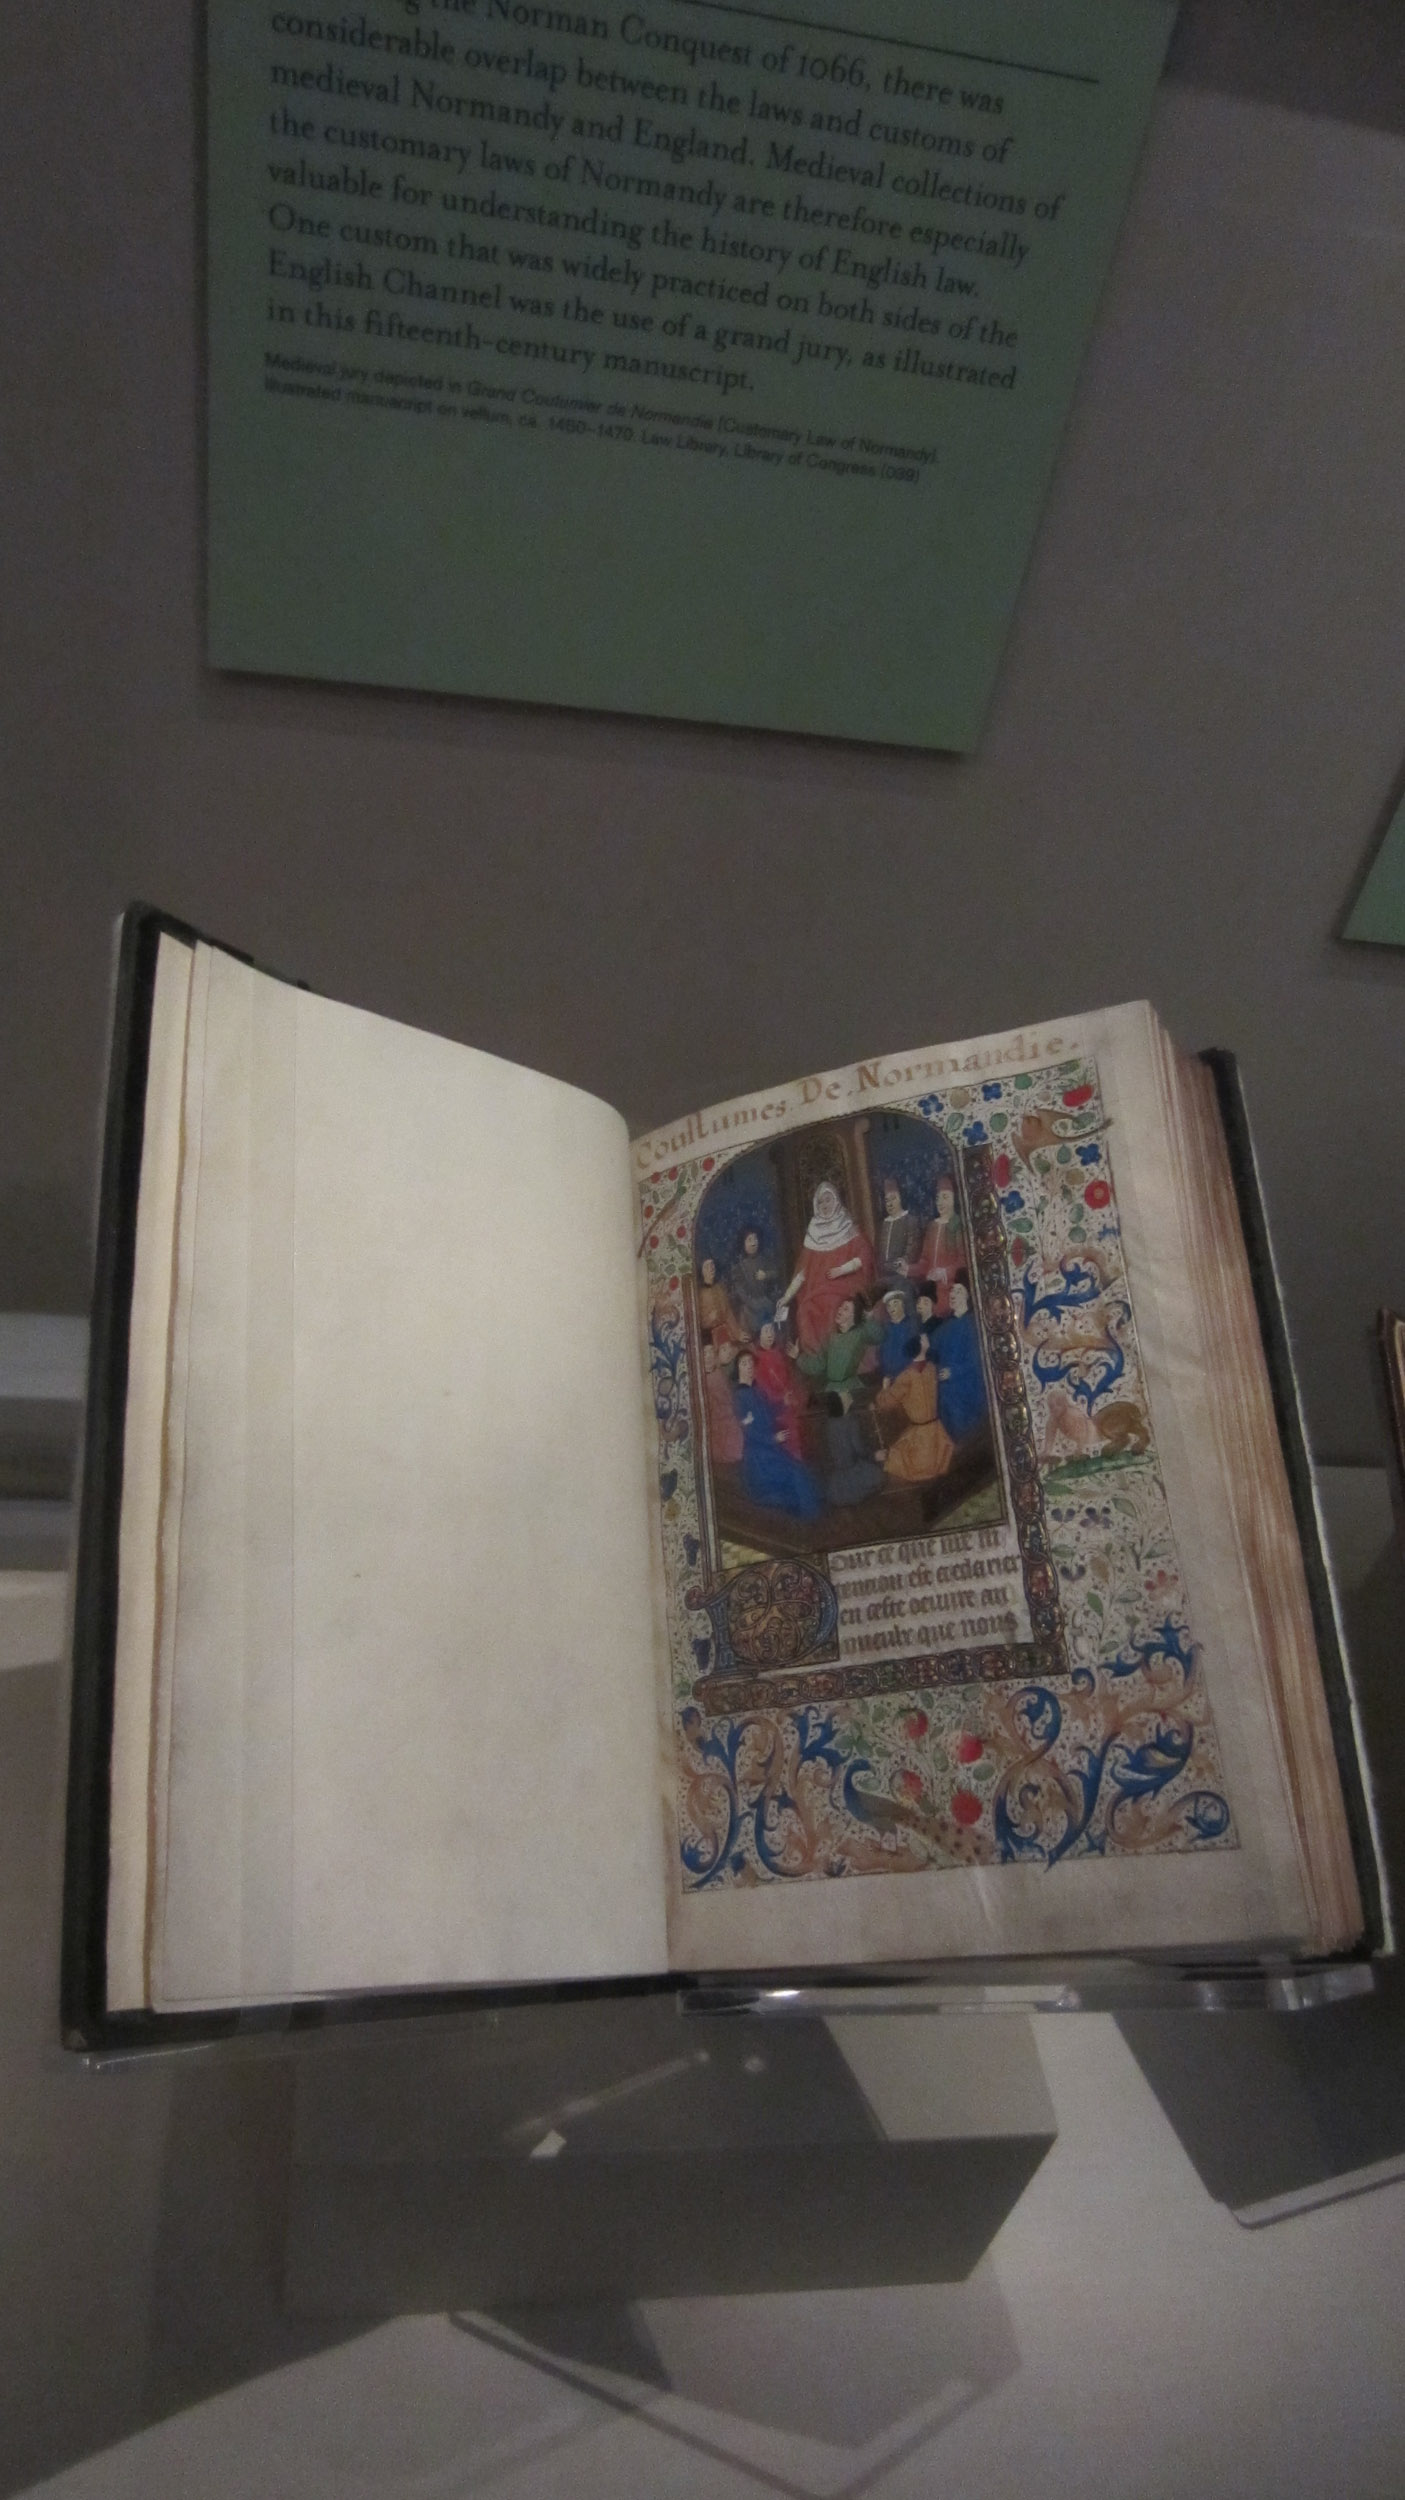 the Norman Conquest of 1066, there was
considerable overlap between the laws and customs of
medieval Normandy and England. Medieval collections of
the customary laws of Normandy are therefore especially
valuable for understanding the history of English law.
One custom that was widely practiced on both sides of the
English Channel was the use of a grand jury, as illustrated
in this fifteenth-century manuscript.
Medieval jury depicted in Grand Coutumier de Normandie [Customary Law of Normandy].
Illustrated manuscript on vellum, ca. 1450–1470. Law Library, Library of Congress (039)
Coustumes De Normandie.
our ce que nre in
tention est declarier
en ceste oeuvre au
mieulx que nous